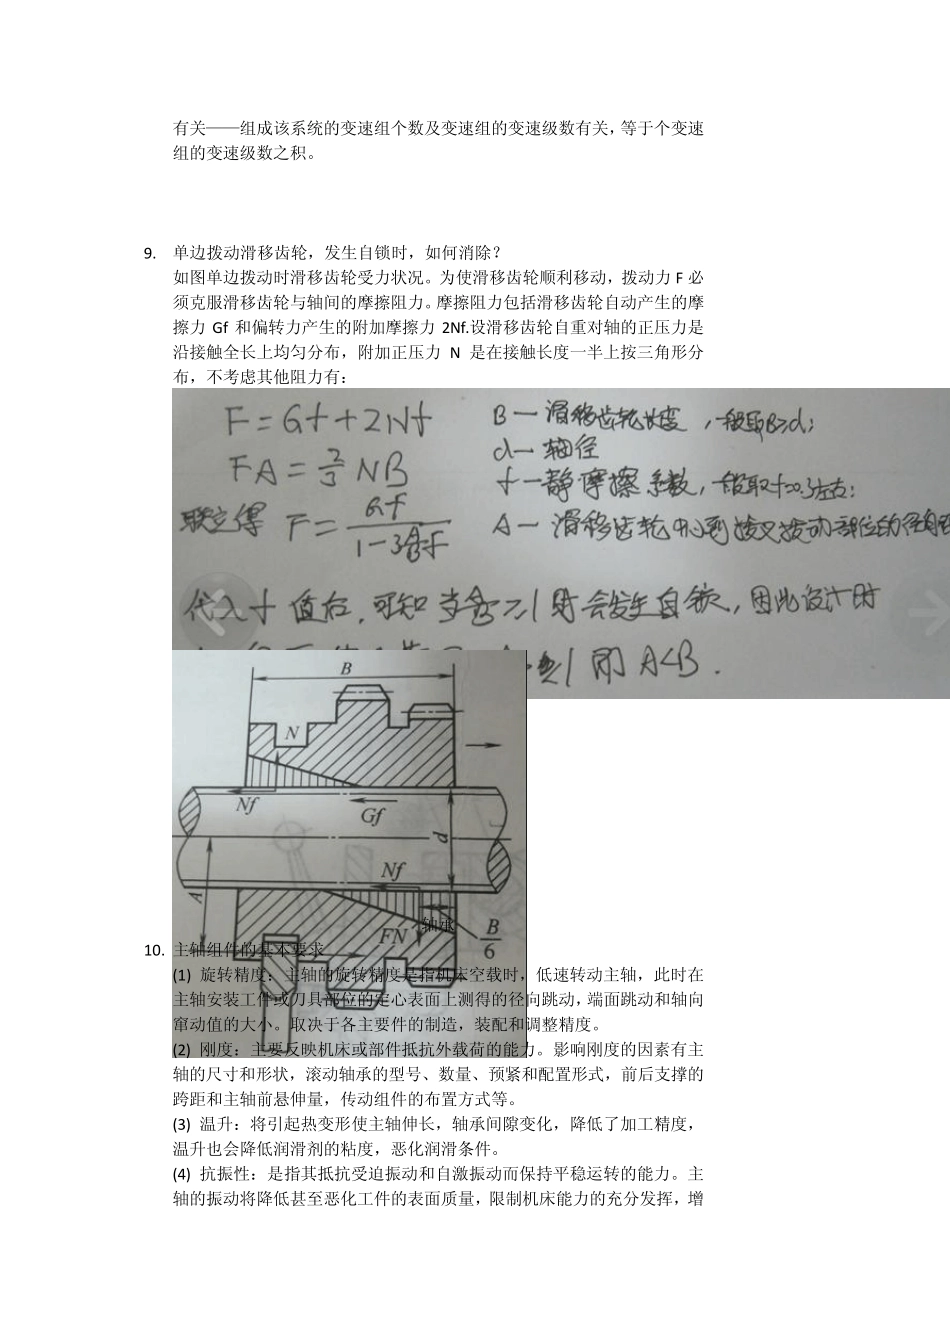 有关——组成该系统的变速组个数及变速组的变速级数有关，等于个变速
组的变速级数之积。
9. 单边拨动滑移齿轮，发生自锁时，如何消除？
如图单边拨动时滑移齿轮受力状况。为使滑移齿轮顺利移动，拨动力 F 必
须克服滑移齿轮与轴间的摩擦阻力。摩擦阻力包括滑移齿轮自动产生的摩
擦力 Gf 和偏转力产生的附加摩擦力 2Nf.设滑移齿轮自重对轴的正压力是
沿接触全长上均匀分布，附加正压力 N 是在接触长度一半上按三角形分
布，不考虑其他阻力有：
F=Gf+2Nf
B—滑移齿轮长度，一般取B≥d;
FA=2/3 NB
d—轴径
f—静摩擦系数，一般取f=0.3左右;
联立得 F= Gf / 1-3 A/B f
A—滑移齿轮中心到拨叉拨动部位的径向
代入f值后，可知当 A/B ≥1时会发生自锁，因此设计时
1 即 A<B.
B
N
Nf
Gf
d
Nf
A
轴承
FN
B/6
10. 主轴组件的基本要求
(1) 旋转精度：主轴的旋转精度是指机床空载时，低速转动主轴，此时在
主轴安装工件或刀具部位的定心表面上测得的径向跳动，端面跳动和轴向
窜动值的大小。取决于各主要件的制造，装配和调整精度。
(2) 刚度：主要反映机床或部件抵抗外载荷的能力。影响刚度的因素有主
轴的尺寸和形状，滚动轴承的型号、数量、预紧和配置形式，前后支撑的
跨距和主轴前悬伸量，传动组件的布置方式等。
(3) 温升：将引起热变形使主轴伸长，轴承间隙变化，降低了加工精度，
温升也会降低润滑剂的粘度，恶化润滑条件。
(4) 抗振性：是指其抵抗受迫振动和自激振动而保持平稳运转的能力。主
轴的振动将降低甚至恶化工件的表面质量，限制机床能力的充分发挥，增